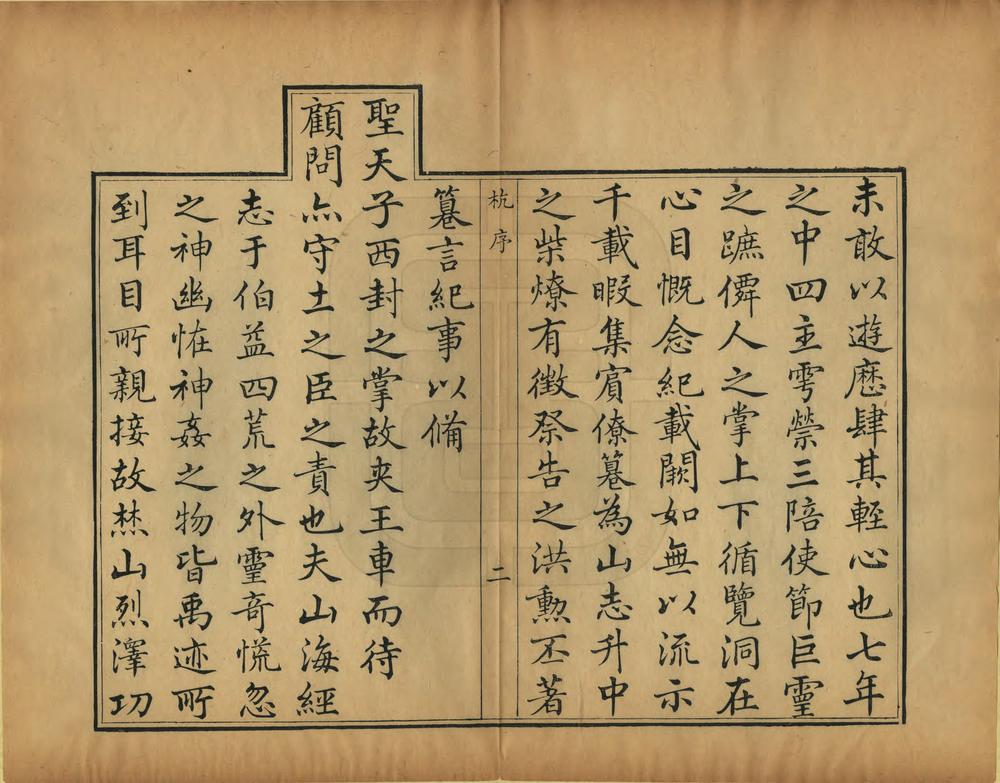 未敢以遊歷肆其輕心也七年
之中四主雩禜三陪使節巨靈
之蹠僲人之掌上下循覽洞在
心目慨念紀載闕如無以流示
千載暇集賓僚篹為山志升中
之柴燎有徵祭告之洪勲丕著
杭序
二
篹言紀事以備
聖天子西封之掌故夾王車而待
顧問亦守土之臣之責也夫山海經
志于伯益四荒之外靈奇慌忽
之神幽恠神姦之物皆禹迹所
到耳目所親接故焚山烈澤功